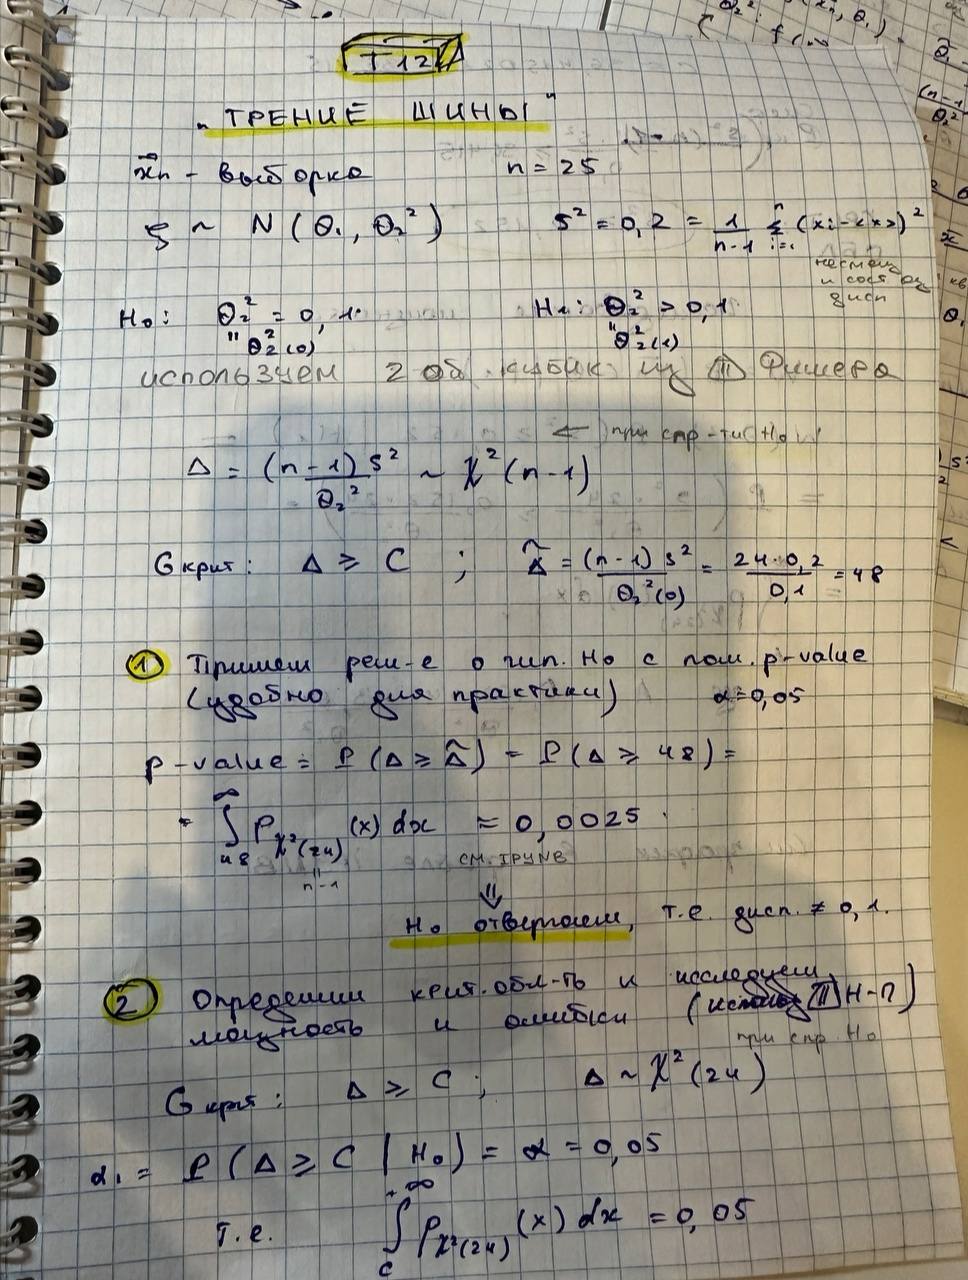 T 12
„ТРЕНИЕ ШИНЫ"
x⃗n - выборка n = 25
ξ ~ N(θ₁, θ₂²) S² = 0,2 = 1/(n-1) Σ_{i=1}^{n} (xi - <x>)²
несмещ и сост оц дисп
H₀: θ₂² = 0,1 H₁: θ₂² > 0,1
" θ₂²(0) " θ₂²(1)
используем 2 об. кубик из Ⅲ Фишера
← при спр-ти H₀
Δ = (n-1)S²/θ₂² ~ χ²(n-1)
Gкрит: Δ ≥ C ; Δ̃ = (n-1)S²/θ₂²(0) = 24·0,2/0,1 = 48
① Примем реш-е о гип. H₀ с пом. p-value
(удобно для практики) α = 0,05
p-value = P(Δ ≥ Δ̃) = P(Δ ≥ 48) =
= ∫_{48}^{∞} P_{χ²(24)}(x) dx ≈ 0,0025
" n-1 см. IPYNB
⇓
H₀ отвергаем, т.е. дисп. ≠ 0,1.
② Определим крит. обл-ть и исследуем
мощность и ошибки (Ⅲ Н-П)
при спр. H₀
Gкрит: Δ ≥ C ; Δ ~ χ²(24)
α₁ = P(Δ ≥ C | H₀) = α = 0,05
т.е. ∫_{C}^{+∞} P_{χ²(24)}(x) dx = 0,05